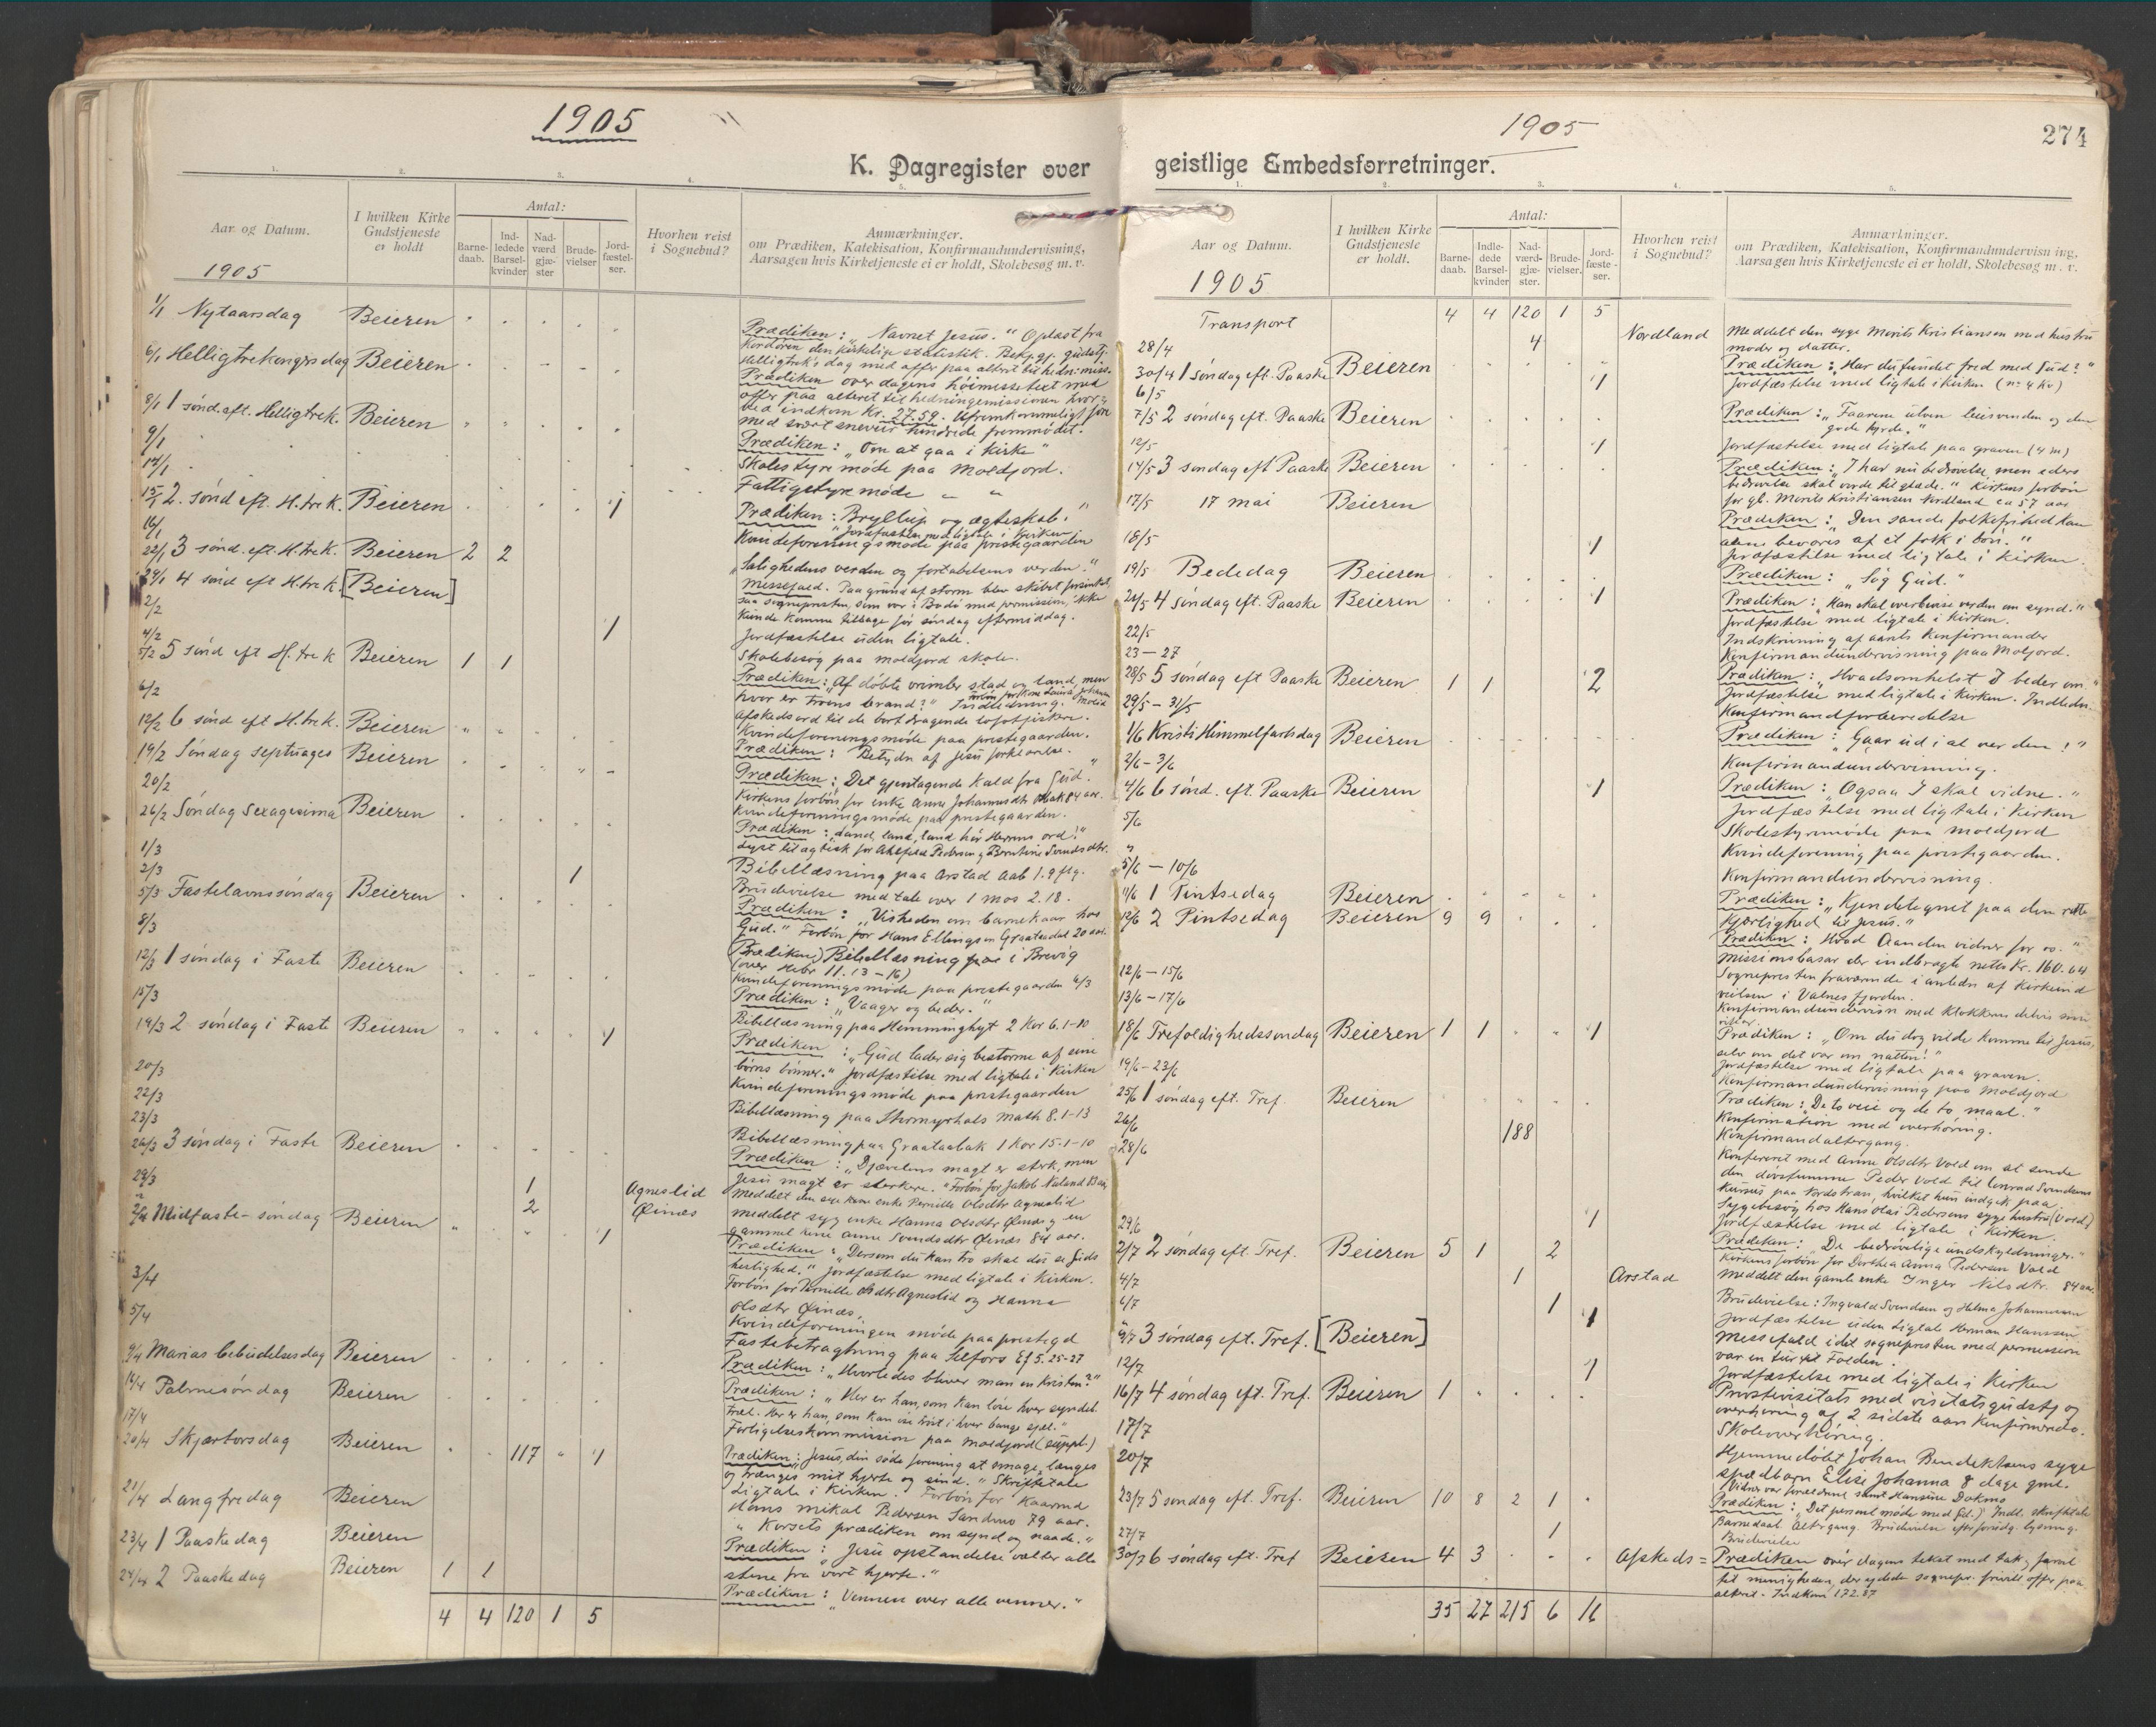 1905
K. Dagregister over
Aar og Datum.
I hvilken Kirke Gudstjeneste er holdt
Antal:
Barne-daab.
Ind-ledede Barsel-kvinder
Nad-værd gjæ-ster
Brude-vielser
Jord-fæstel-ser.
Hvorhen reist i Sognebud?
Anmærkninger.
om Prædiken, Katekisation, Konfirmandundervisning,
Aarsagen hvis Kirketjeneste ei er holdt, Skolebesøg m. v.
1905
1/1 Nytaarsdag Beieren
Prædiken: „Navnet Jesus." Oplæst fra
Kordøren den kirkelige statistik.
6/1 Helligtrekongersdag Beieren
Helligtrek's dag med offer paa alteret til hedn: miss.
Prædiken over dagens høimessetext med
offer paa alteret til hedningemissionen hvor-
ved indkom Kr. 27.59. Ufremkommeligt føre
med svært sneveir hindrede fremmødet.
8/1 1 sønd. eft. Helligtrek. Beieren
Prædiken: „Om at gaa i kirke"
9/1
Skolestyremøde paa Moldjord.
14/1
Fattigstyremøde " "
15/1 2. sønd eft. H.trek. Beieren 1
Prædiken: Bryllup og ægteskab."
Jordfæstelse med ligtale i Kirken
16/1
Kvindeforeningsmøde paa prestegaarden
22/1 3 sønd. eft. H.trek. Beieren 2 2
„Salighedens verden og fortabelsens verden."
29/1 4 sønd eft H.trek. [Beieren]
Messefald. Paa grund af storm blev skibet forsinket,
saa sognepresten, som var i Bodø med permission, ikke
kunde komme tilbage før søndag eftermiddag.
2/2 1
Jordfæstelse uden ligtale.
4/2
Skolebesøg paa moldjord skole.
5/2 5 sønd eft H. trek Beieren 1 1
Prædiken: „Af døbte vrimler stad og land, men
hvor er troens brand?" Indledning.
Afskedsord til de bortdragende lofotfiskere.
6/2
Kvindeforeningsmøde paa prestegaarden.
12/2 6 sønd eft H.trek. Beieren
Prædiken: Betydn af Jesu forklarelse.
19/2 Søndag septuages Beieren
Prædiken: Det gjentagende kald fra Gud."
Kirkens forbøn for enke Anne Johannesdtr 84 aar.
20/2
Kvindeforeningsmøde paa prestegaarden.
26/2 Søndag Sexagesima Beieren
Prædiken: „Land, land, land hør Herrens ord!"
1/3
Bibellæsning paa Arstad Aab 1.9 flg.
2/3 1
Brudevielse med tale over 1 mos 2.18.
5/3 Fastelavnssøndag Beieren
Prædiken: „Visheden om barnekaar hos
Gud." Forbøn for Hans Ellingsen Graataadal 20 aar.
8/3
(Prædiken) Bibellæsning paa i Brevig
(over Hebr 11. 13-16)
Kvindeforeningsmøde paa prestegaarden 6/3
12/3 1 søndag i Faste Beieren
Prædiken: „Vaager og beder."
15/3
Bibellæsning paa Hemminghyt 2 Kor 6.1-10
19/3 2 søndag i Faste Beieren 1
Prædiken: „Gud lader sig bestorme af sine
børns bønner." Jordfæstelse med ligtale i Kirken
20/3
Kvindeforeningsmøde paa prestegaarden
22/3
Bibellæsning paa Stormyrhals Math 8.1-13
23/3
Bibellæsning paa Graataabak 1 Kor 15.1-10
26/3 3 søndag i Faste Beieren
Prædiken: „Djævelens magt er sterk, men
Jesu magt er sterkere." Forbøn for Jakob Naland 83 aar
29/3 1 Agneslid
meddelt den syge kone enke Pernille Olsdtr Agneslid
" 2 Øinæs
meddelt syg enke Hanna Olsdtr Øinæs og en
gammel kone Anne Svendsdtr Øinæs 84 aar.
2/4 Midfaste-søndag Beieren 1
Prædiken: „Dersom du kan tro skal du se Guds
herlighed." Jordfæstelse med ligtale i Kirken.
Forbøn for Pernille Olsdtr Agneslid og Hanna
Olsdtr Øinæs.
3/4
Kvindeforeningen møde paa prestegd
5/4
Fastebetragtning paa Selfors Ef 5.25-27
9/4 Marias bebudelsesdag Beieren
Prædiken: „Hvorledes bliver man en kristen?"
16/4 Palmesøndag Beieren
Prædiken: „Her er han, som kan løse hver syndet
træl. Her er han, som kan ise trøst i hver bange sjæl."
17/4
Forligelseskommission paa moldjord (suppl.)
20/4 Skjærtorsdag Beieren 117 1
Prædiken: Jesus, din søde forening at smage, længes
og trænges mit hjerte og sind." Skriftetale
Ligtale i Kirken. Forbøn for Kaarmd
Hans mikal Pedersen Sandmo 79 aar.
21/4 Langfredag Beieren
„Korsets prædiken om synd og naade."
23/4 1 Paaskedag Beieren
Prædiken: Jesu opstandelse vælter alle
stene fra vort hjerte."
24/4 2 Paaskedag Beieren 1 1
Prædiken: „Vennen over alle venner."
4 4 120 1 5
1905
274
geistlige Embedsforretninger.
Aar og Datum.
I hvilken Kirke Gudstjeneste er holdt.
Antal:
Barne-daab.
Indle-dede Barsel-kvinder
Nad-værd-gjæ-ster.
Brude-vielser.
Jord-fæste-ser.
Hvorhen reist i Sognebud?
Anmærkninger.
om Prædiken, Katekisation, Konfirmandundervisning,
Aarsagen hvis Kirketjeneste ei er holdt, Skolebesøg m. v.
1905
Transport 4 4 120 1 5
28/4 4 Nordland
Meddelt den syge Morits Kristiansen med hustru
moder og datter.
30/4 1 søndag eft. Paaske Beieren
Prædiken: „Har du fundet fred med Gud?"
6/5 1
Jordfæstelse med ligtale i kirken (nr 4 kv)
7/5 2 søndag eft. Paaske Beieren
Prædiken: „Faarene ulven leiesvenden og den
gode hyrde."
12/5 1
Jordfæstelse med ligtale paa graven (4 m)
14/5 3 søndag eft Paaske Beieren
Prædiken: „I har nu bedrøvelse men eders
bedrøvelse skal vorde til glæde." Kirkens forbøn
for gb. Morits Kristiansen Nordland ca 57 aar
17/5 17 mai Beieren
Prædiken: „Den sande folkefrihed kan
alene bevares af et folk i bøn."
18/5 1
Jordfæstelse med ligtale i Kirken.
19/5 Bededag Beieren
Prædiken: „Søg Gud."
21/5 4 søndag eft. Paaske Beieren 1
Prædiken: „Han skal overbevise verden om synd."
Jordfæstelse med ligtale i Kirken.
22/5
Indskrivning af aarets Konfirmander
23-27
Konfirmandundervisning paa Moljord.
28/5 5 søndag eft Paaske Beieren 1 1 2
Prædiken: „Hvadsomhelst I beder om"
Jordfæstelse med ligtale i Kirken. Indledn.
29/5-31/5
Konfirmandforberedelse
1/6 Kristi Himmelfartsdag Beieren
Prædiken: „Gaar ud i al verden!"
2/6-3/6
Konfirmandundervisning.
4/6 6 sønd. eft. Paaske Beieren 1
Prædiken: „Ogsaa I skal vidne."
Jordfæstelse med ligtale i Kirken
5/6
Skolestyremøde paa moldjord
"
Kvindeforening paa prestegaarden.
5/6-10/6
Konfirmandundervisning.
11/6 1 Pintsedag Beieren
Prædiken: „Kjendetegnet paa den rette
kjærlighed til Jesus."
12/6 2 Pintsedag Beieren 9 9
Prædiken: Hvad Aanden vidner for os."
12/6-15/6
Missionsbasar der indbragte netto Kr. 160.64
Sognepresten fraværende i anledn af Kirkeind
vielsen i Valnesfjorden.
13/6-17/6
Konfirmandundervisn med Klokkeren delvis som
18/6 Trefoldighedssøndag Beieren 1 1 1
Prædiken: „Om du dog vilde komme til Jesus,
selv om det var om natten!"
Jordfæstelse med ligtale paa graven.
19/6-23/6
Konfirmandundervisning paa Moldjord
25/6 1 søndag eft. Tref. Beieren
Prædiken: „De to veie og de to maal."
26/6
Konfirmation med overhøring.
188
Konfirmandaltergang.
28/6
Konfereret med Anne Olsdtr Vold om at sende
den døvstumme Peder Vold til Conrad Svendsens
kursus paa Nordstran, hvilket hun indgik paa
Sygebesøg hos Hans Olai Pedersens syge hustru (Vold)
29/6 1
Jordfæstelse med ligtale i Kirken.
2/7 2 søndag eft. Tref. Beieren 5 1 2
Prædiken: De bedrøvelige undskyldninger."
Kirkens forbøn for Dorthea Anna Pedersen Vold
4/7 1 Arstad
Meddelt den gamle enke Inger Nilsdtr. 84 aar.
6/7 1
Brudevielse: Ingvald Svendsen og Helma Johannesen
1
Jordfæstelse uden ligtale Herman Hanssen.
9/7 3 søndag eft. Tref. [Beieren]
Messefald idet sognepresten med permission
var en tur til Folden.
12/7 1
Jordfæstelse med ligtale i Kirken
16/7 4 søndag eft. Tref. Beieren 1
Provstevisitats med visitatsgudstj og
overhøring af 2 sidste aars Konfirmerede.
17/7
Skoleoverhøring.
20/7
Hjemmedøbt Johan Bendiktsens syge
spædbarn Elise Johanna 8 dage gml.
Vidner var forældrene samt Hansine Dokmo
23/7 5 søndag eft. Tref. Beieren 10 8 2 1
Prædiken: „Det personl møde med Gud." Indl. skriftetale
Barnedaab. Altergang. Brudevielse efter foredg. lysning.
27/7 1
Brudevielse
30/7 6 søndag eft. Tref Beieren 4 3 Afskeds=
Prædiken over dagens tekst med tak, farvel
til menigheden, der ydede sognepr. frivilt offer paa
alteret. Indkom 172.87
35 27 215 6 16